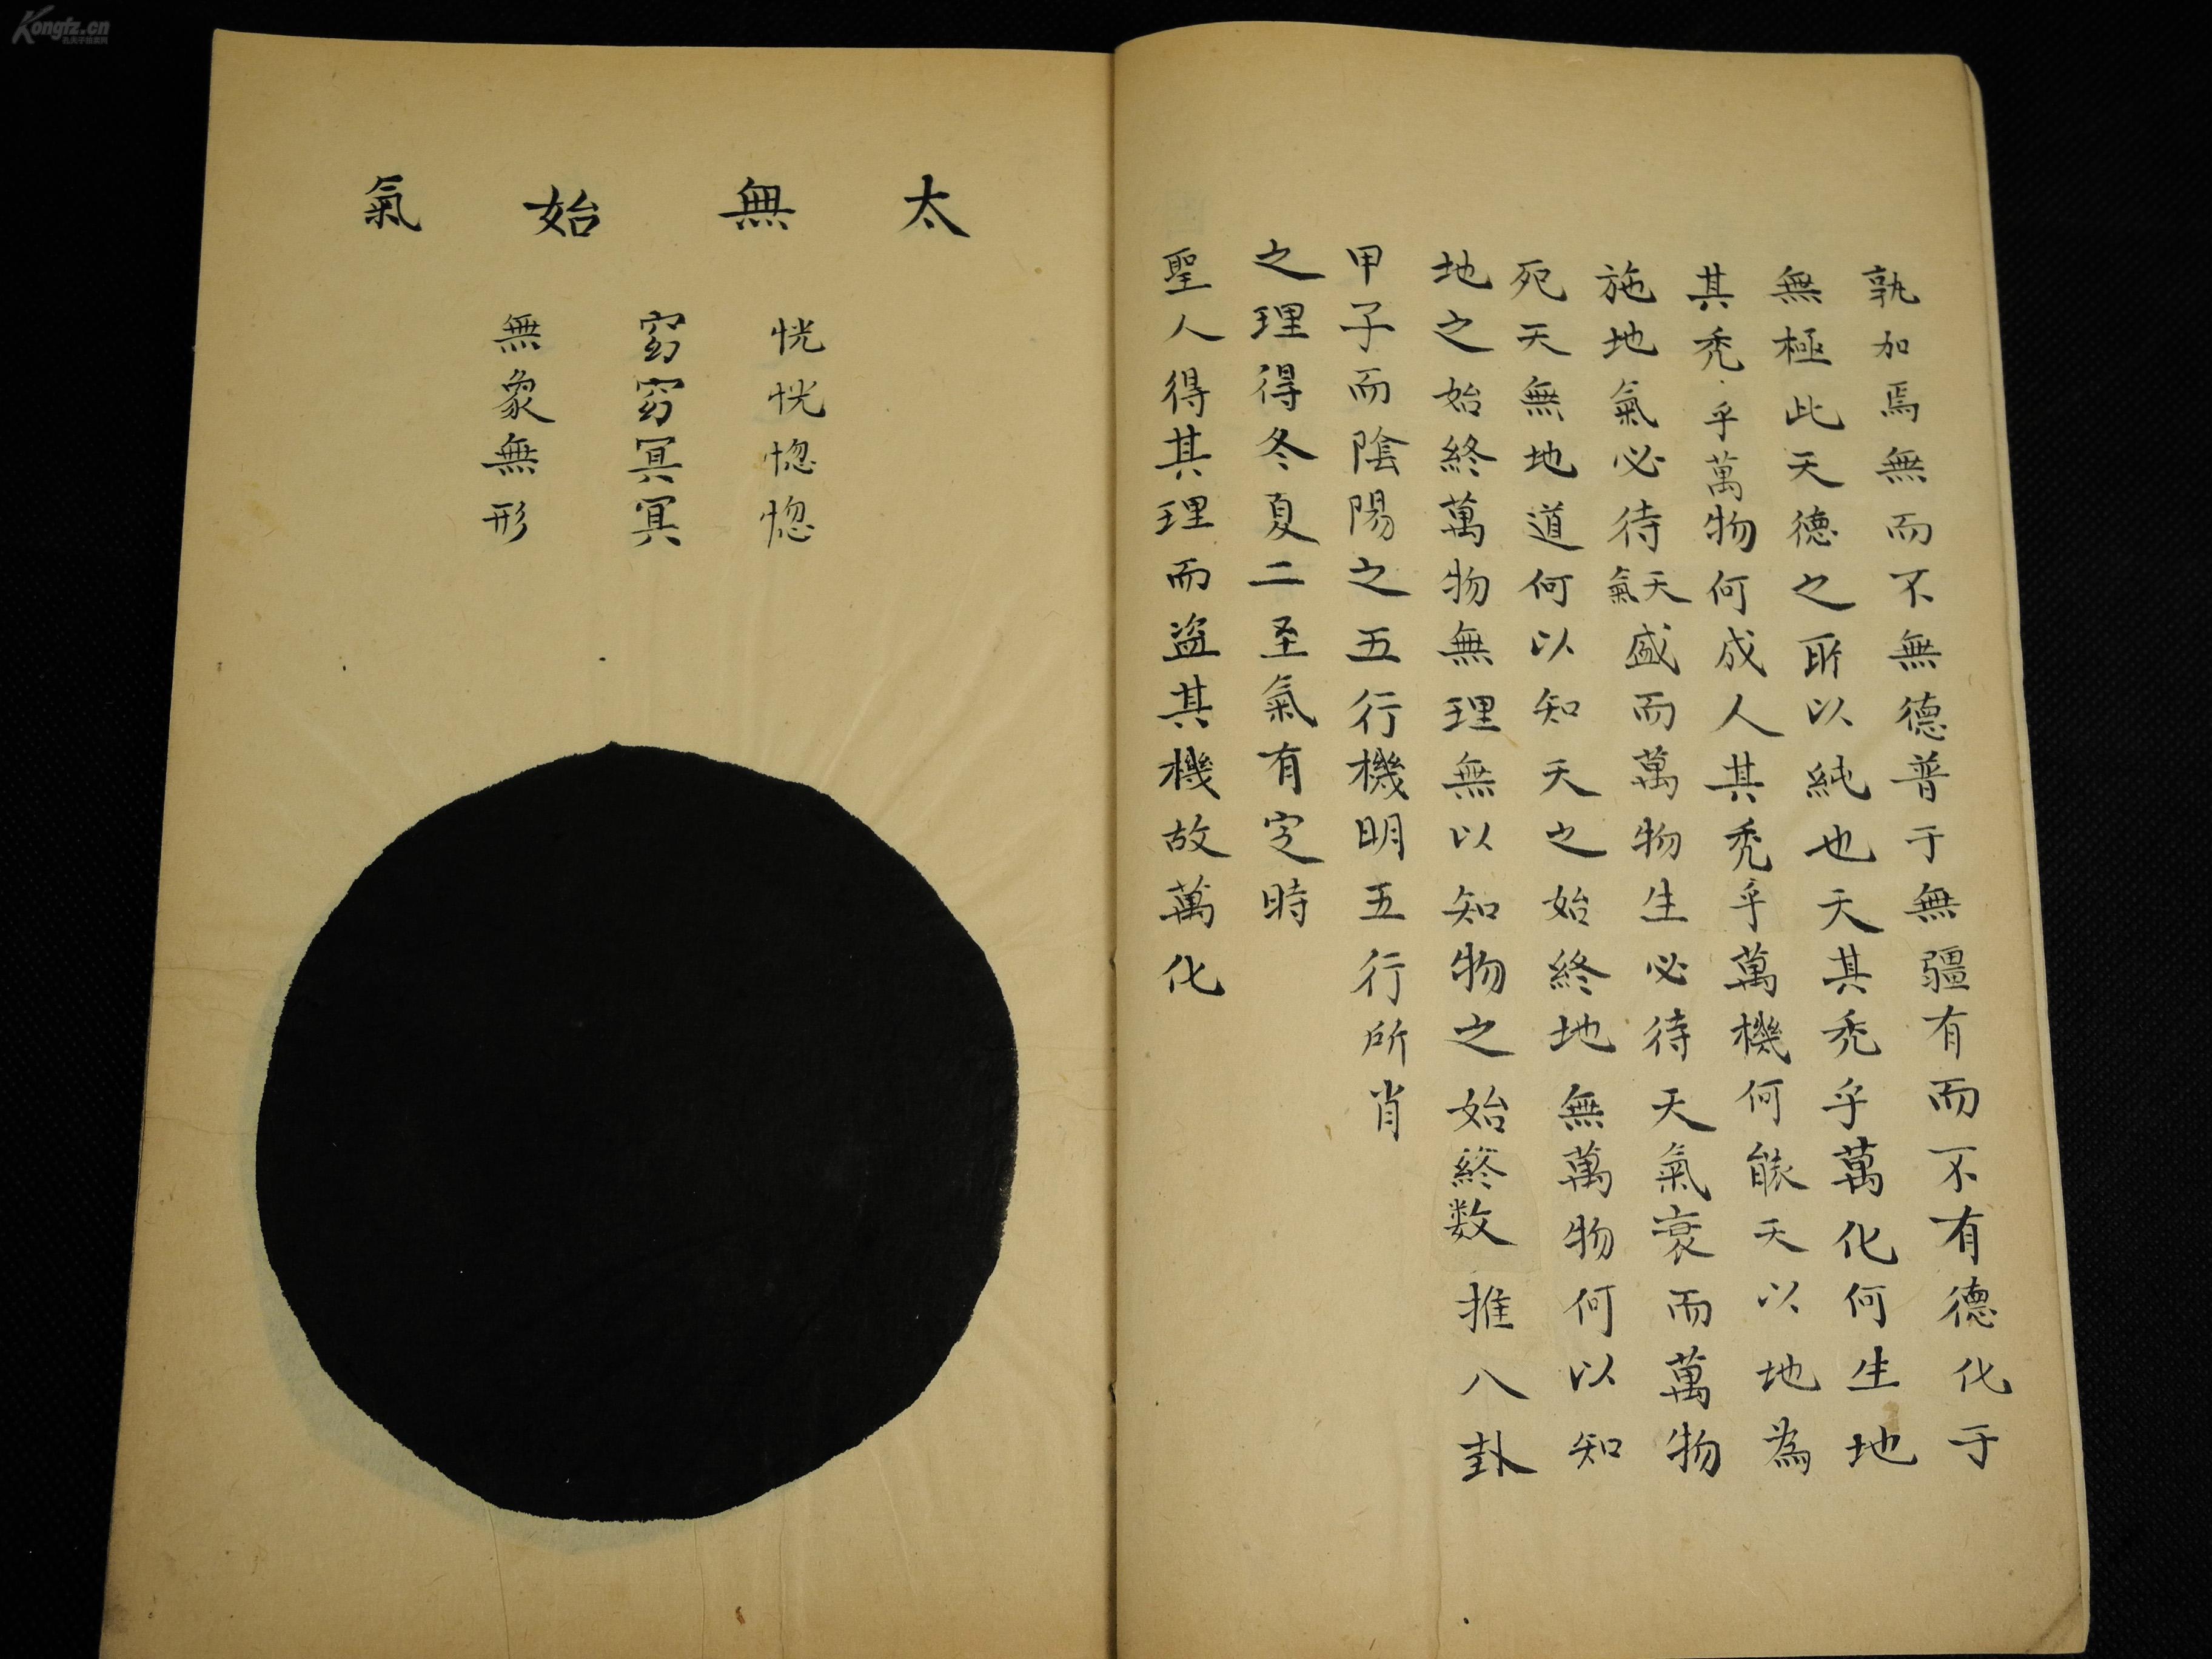 孰加焉無而不無德普于無疆有而不有德化于
無極此天德之所以純也天其禿乎萬化何生地
其禿乎萬物何成人其禿乎萬機何能天以地為
施地氣必待天氣盛而萬物生必待天氣衰而萬物
死天無地道何以知天之始終地無萬物何以知
地之始終萬物無理無以知物之始終数推八卦
甲子而陰陽之五行機明五行所肖
之理得冬夏二至氣有定時
聖人得其理而盗其機故萬化
太無始氣
恍恍惚惚
窈窈冥冥
無象無形
Kongfz.cn